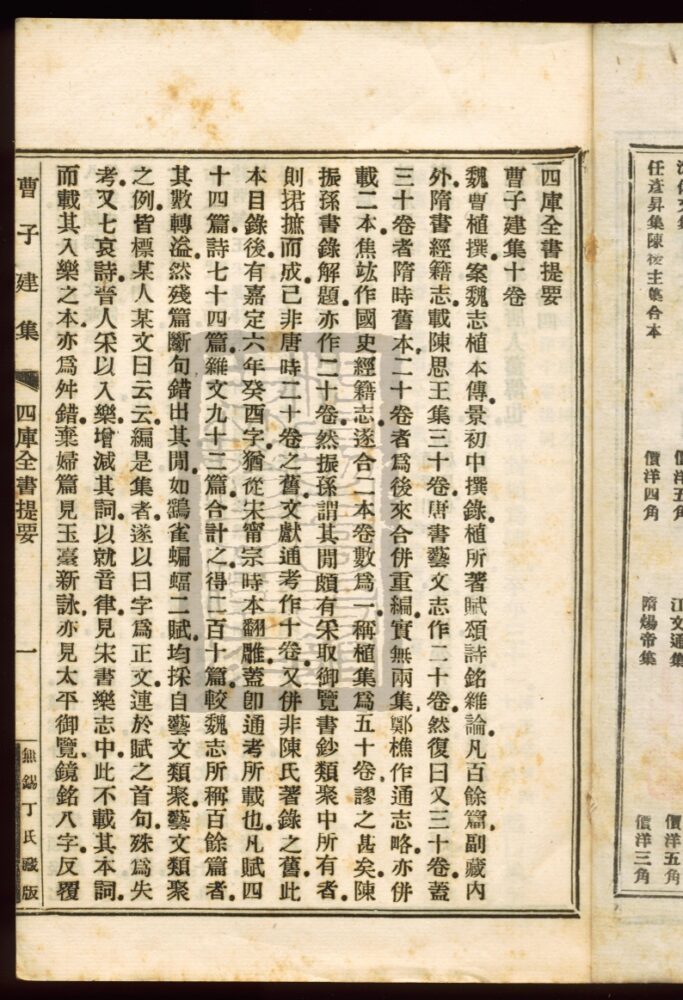 任彥昇集陳後主集合本
價洋五角
價洋四角
江文通集
隋煬帝集
價洋五角
價洋三角
四庫全書提要
曹子建集十卷
魏曹植撰案魏志植本傳景初中撰錄植所著賦頌詩銘雜論凡百餘篇副藏內
外隋書經籍志載陳思王集三十卷唐書藝文志作二十卷然復曰又三十卷蓋
三十卷者隋時舊本二十卷者爲後來合併重編實無兩集鄭樵作通志略亦併
載二本焦竑作國史經籍志遂合二本卷數爲一稱植集爲五十卷謬之甚矣陳
振孫書錄解題亦作二十卷然振孫謂其閒頗有采取御覽書鈔類聚中所有者
則捃摭而成已非唐時二十卷之舊文獻通考作十卷又併非陳氏著錄之舊此
本目錄後有嘉定六年癸酉字猶從宋甯宗時本翻雕蓋卽通考所載也凡賦四
十四篇詩七十四篇雜文九十二篇合計之得二百十篇較魏志所稱百餘篇者
其數轉溢然殘篇斷句錯出其閒如鷂雀蝙蝠二賦均採自藝文類聚藝文類聚
之例皆標某人某文曰云云編是集者遂以曰字爲正文連於賦之首句殊爲失
考又七哀詩晉人采以入樂增減其詞以就音律見宋書樂志中此不載其本詞
而載其入樂之本亦爲舛錯棄婦篇見玉臺新詠亦見太平御覽鏡銘八字反覆
曹子建集
四庫全書提要
一
無錫丁氏藏版